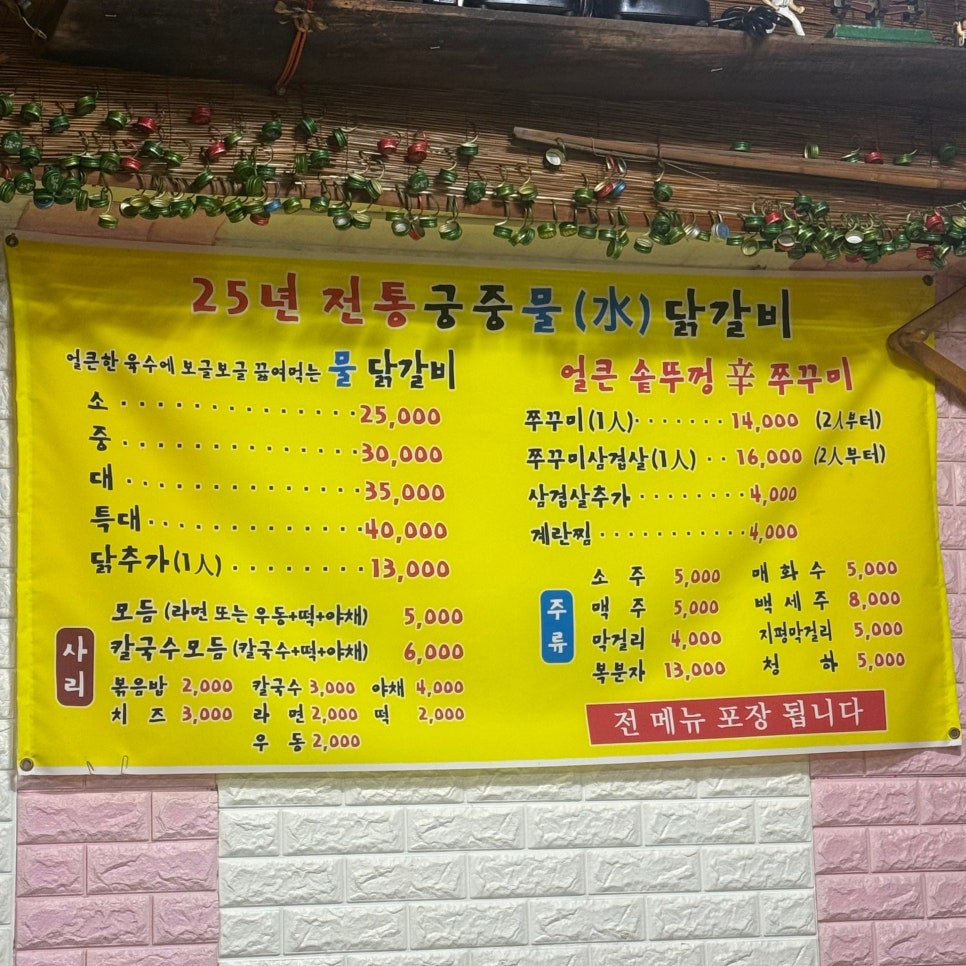 25년 전통 궁중 물(水) 닭갈비
얼큰한 육수에 보글보글 끓여먹는 물 닭갈비
소 25,000
중 30,000
대 35,000
특대 40,000
닭추가(1人) 13,000
사리
모듬 (라면 또는 우동+떡+야채) 5,000
칼국수모듬 (칼국수+떡+야채) 6,000
볶음밥 2,000 칼국수 3,000 야채 4,000
치즈 3,000 라면 2,000 떡 2,000
우동 2,000
얼큰 솥뚜껑 辛 쭈꾸미
쭈꾸미(1人) 14,000 (2人부터)
쭈꾸미삼겹살(1人) 16,000 (2人부터)
삼겹살추가 4,000
계란찜 4,000
주류
소주 5,000 매화수 5,000
맥주 5,000 백세주 8,000
막걸리 4,000 지평막걸리 5,000
복분자 13,000 청하 5,000
전 메뉴 포장 됩니다